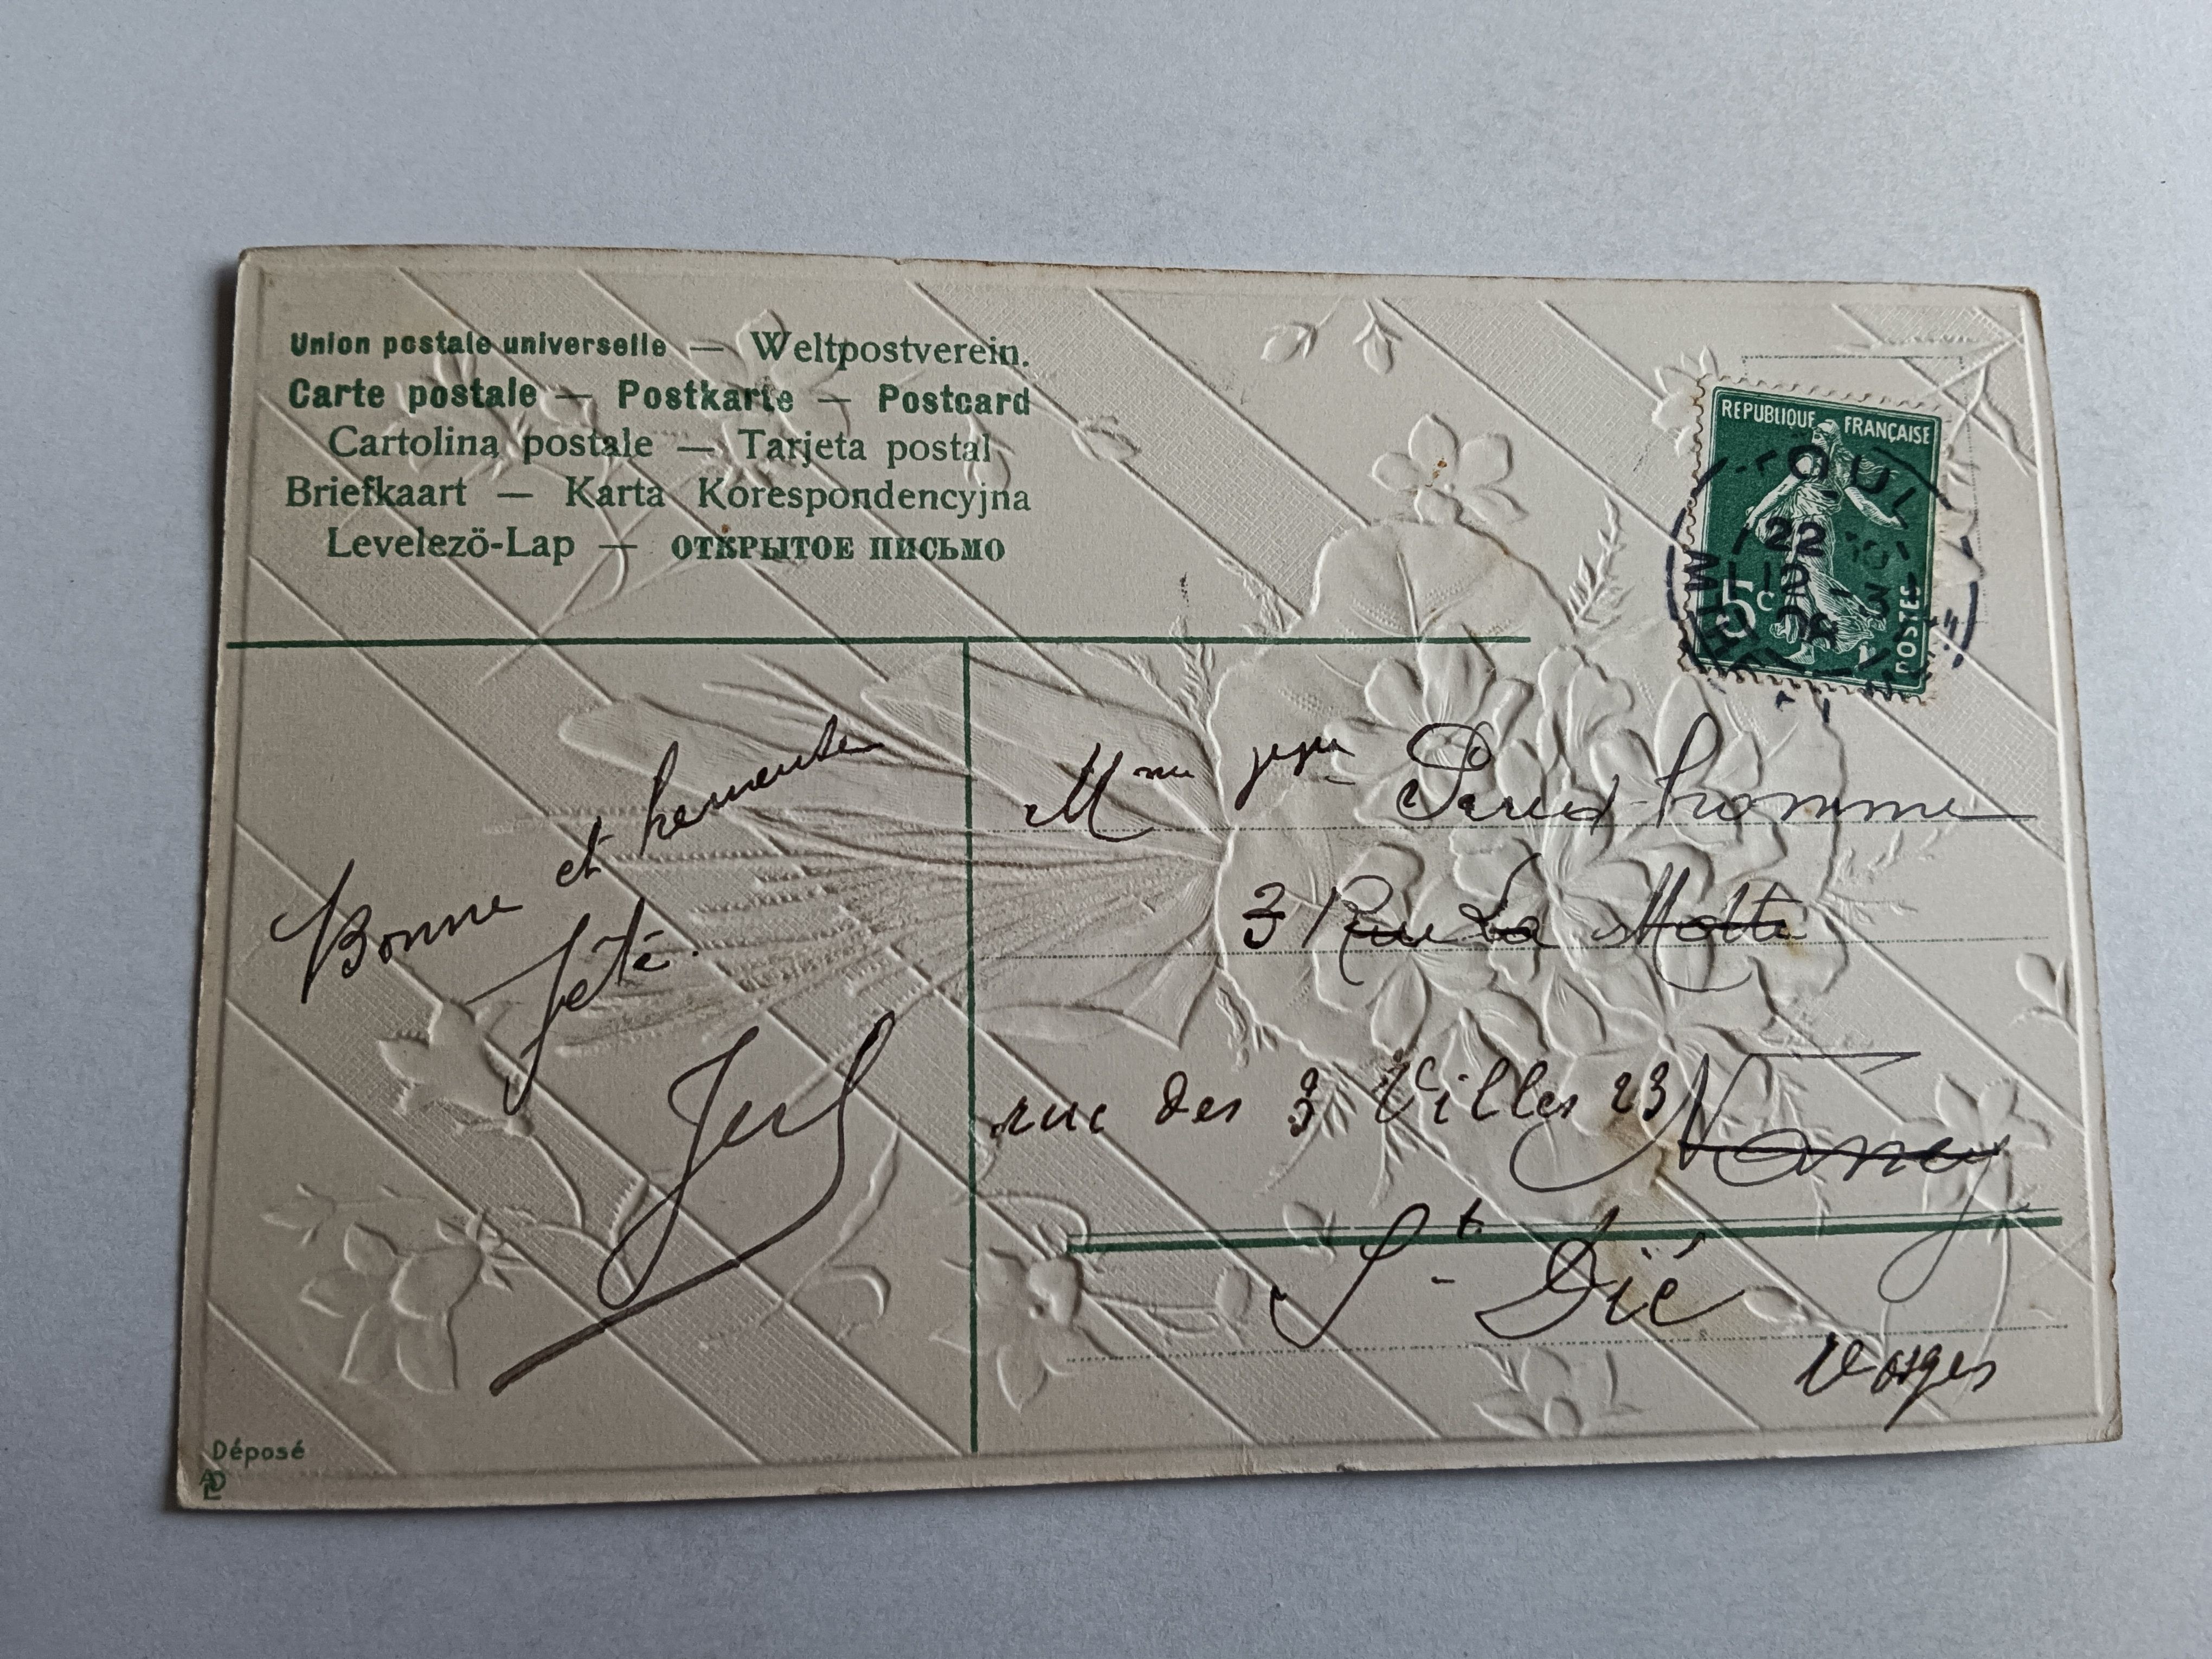 Union postale universelle — Weltpostverein.
Carte postale — Postkarte — Postcard
Cartolina postale — Tarjeta postal
Briefkaart — Karta Korespondencyjna
Levelezö-Lap — ОТКРЫТОЕ ПИСЬМО
REPUBLIQUE FRANÇAISE
OUL
22
12
08
5c
POSTES
Bonne et heureuse
fête.
Mme
3 Rue La Motte
rue des 3 Villes 23 Nancy
St - Dié
Vosges
Déposé